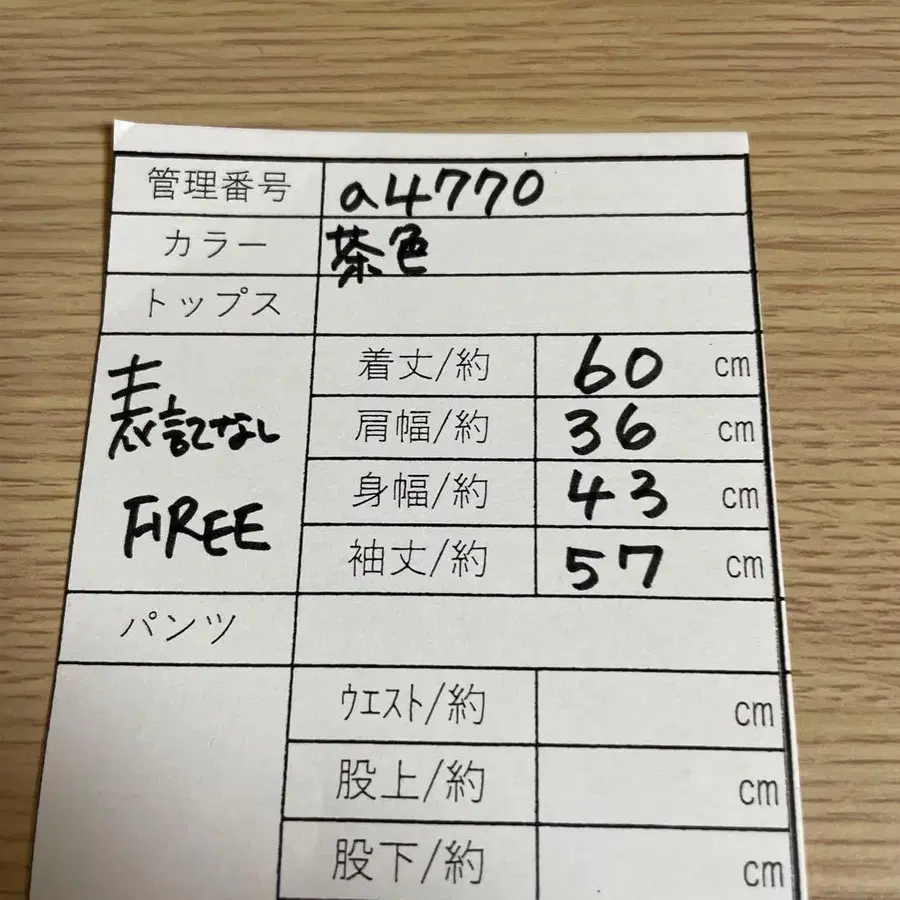 管理番号 a4770
カラー 茶色
トップス
着丈/約 60 cm
表記なし 肩幅/約 36 cm
FREE 身幅/約 43 cm
袖丈/約 57 cm
パンツ
ウエスト/約 cm
股上/約 cm
股下/約 cm